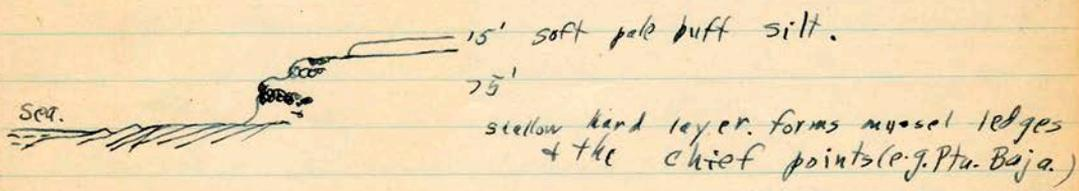 15' soft pale buff silt.
75'
Sea.
shallow hard layer. forms mussel ledges
+ the chief points (e.g. Pta. Baja.)